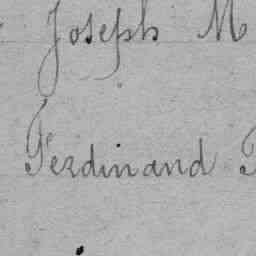 Joseph M
Ferdinand